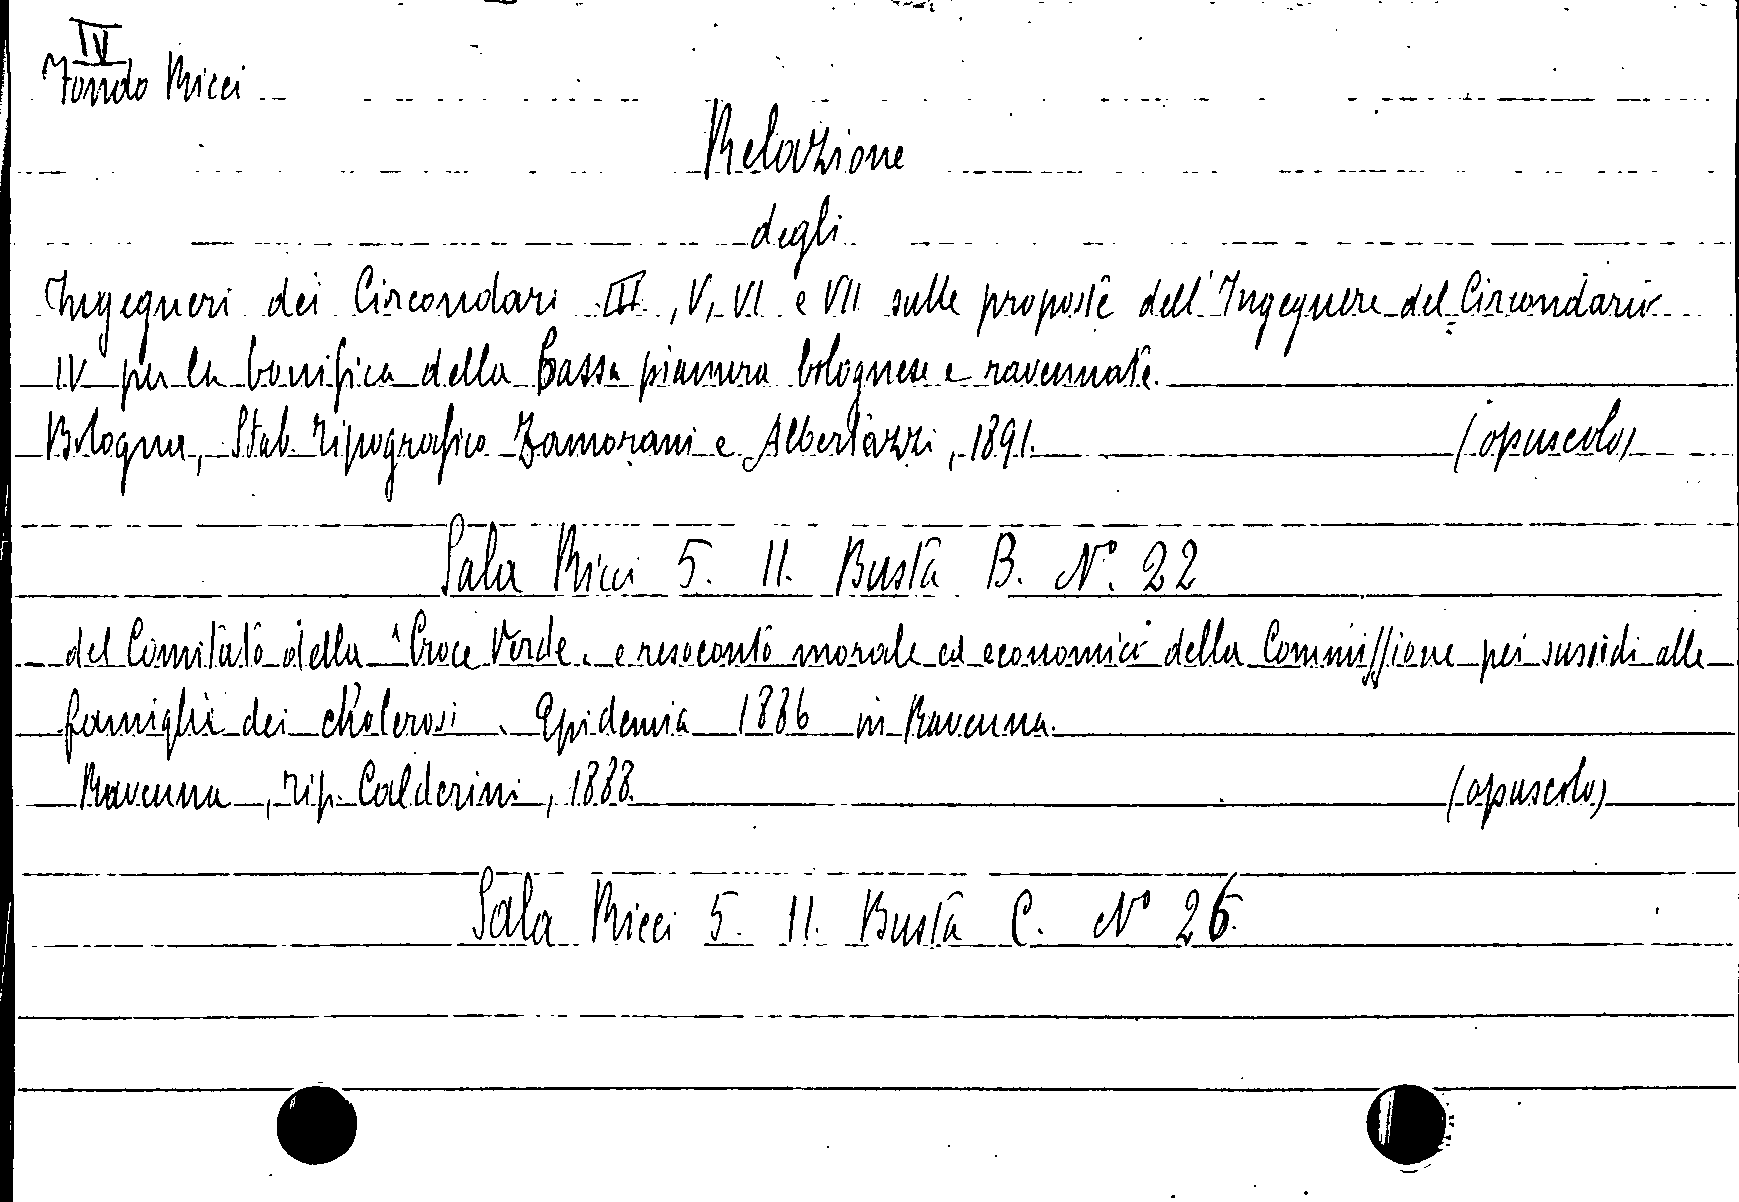 IV
Fondo Ricci
Relazione
degli
Ingegneri dei Circondari III, V, VI e VII sulle proposte dell'Ingegnere del Circondario
IV per la bonifica della bassa pianura bolognese e ravennate.
Bologna, Stab. Tipografico Zamorani e Albertazzi, 1891. (opuscolo)
Sala Ricci 5. 11. Busta B. N° 22
del Comitato della "Croce Verde" e resoconto morale ed economico della Commissione pei sussidi alle
famiglie dei cholerosi. Epidemia 1886 in Ravenna.
Ravenna, Tip. Calderini, 1888. (opuscolo)
Sala Ricci 5. 11. Busta C. N° 26.